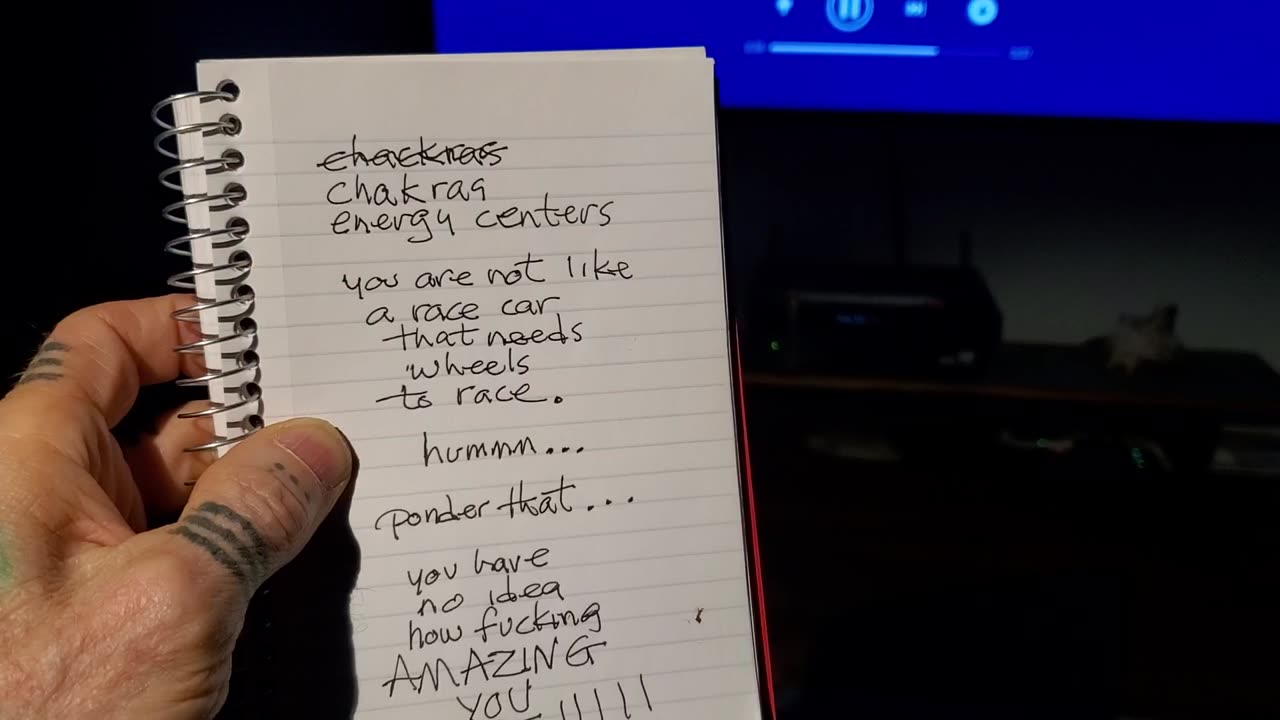 chackras
chakras
energy centers
you are not like
a race car
that needs
wheels
to race.
hummn...
ponder that...
you have
no idea
how fucking
AMAZING
YOU